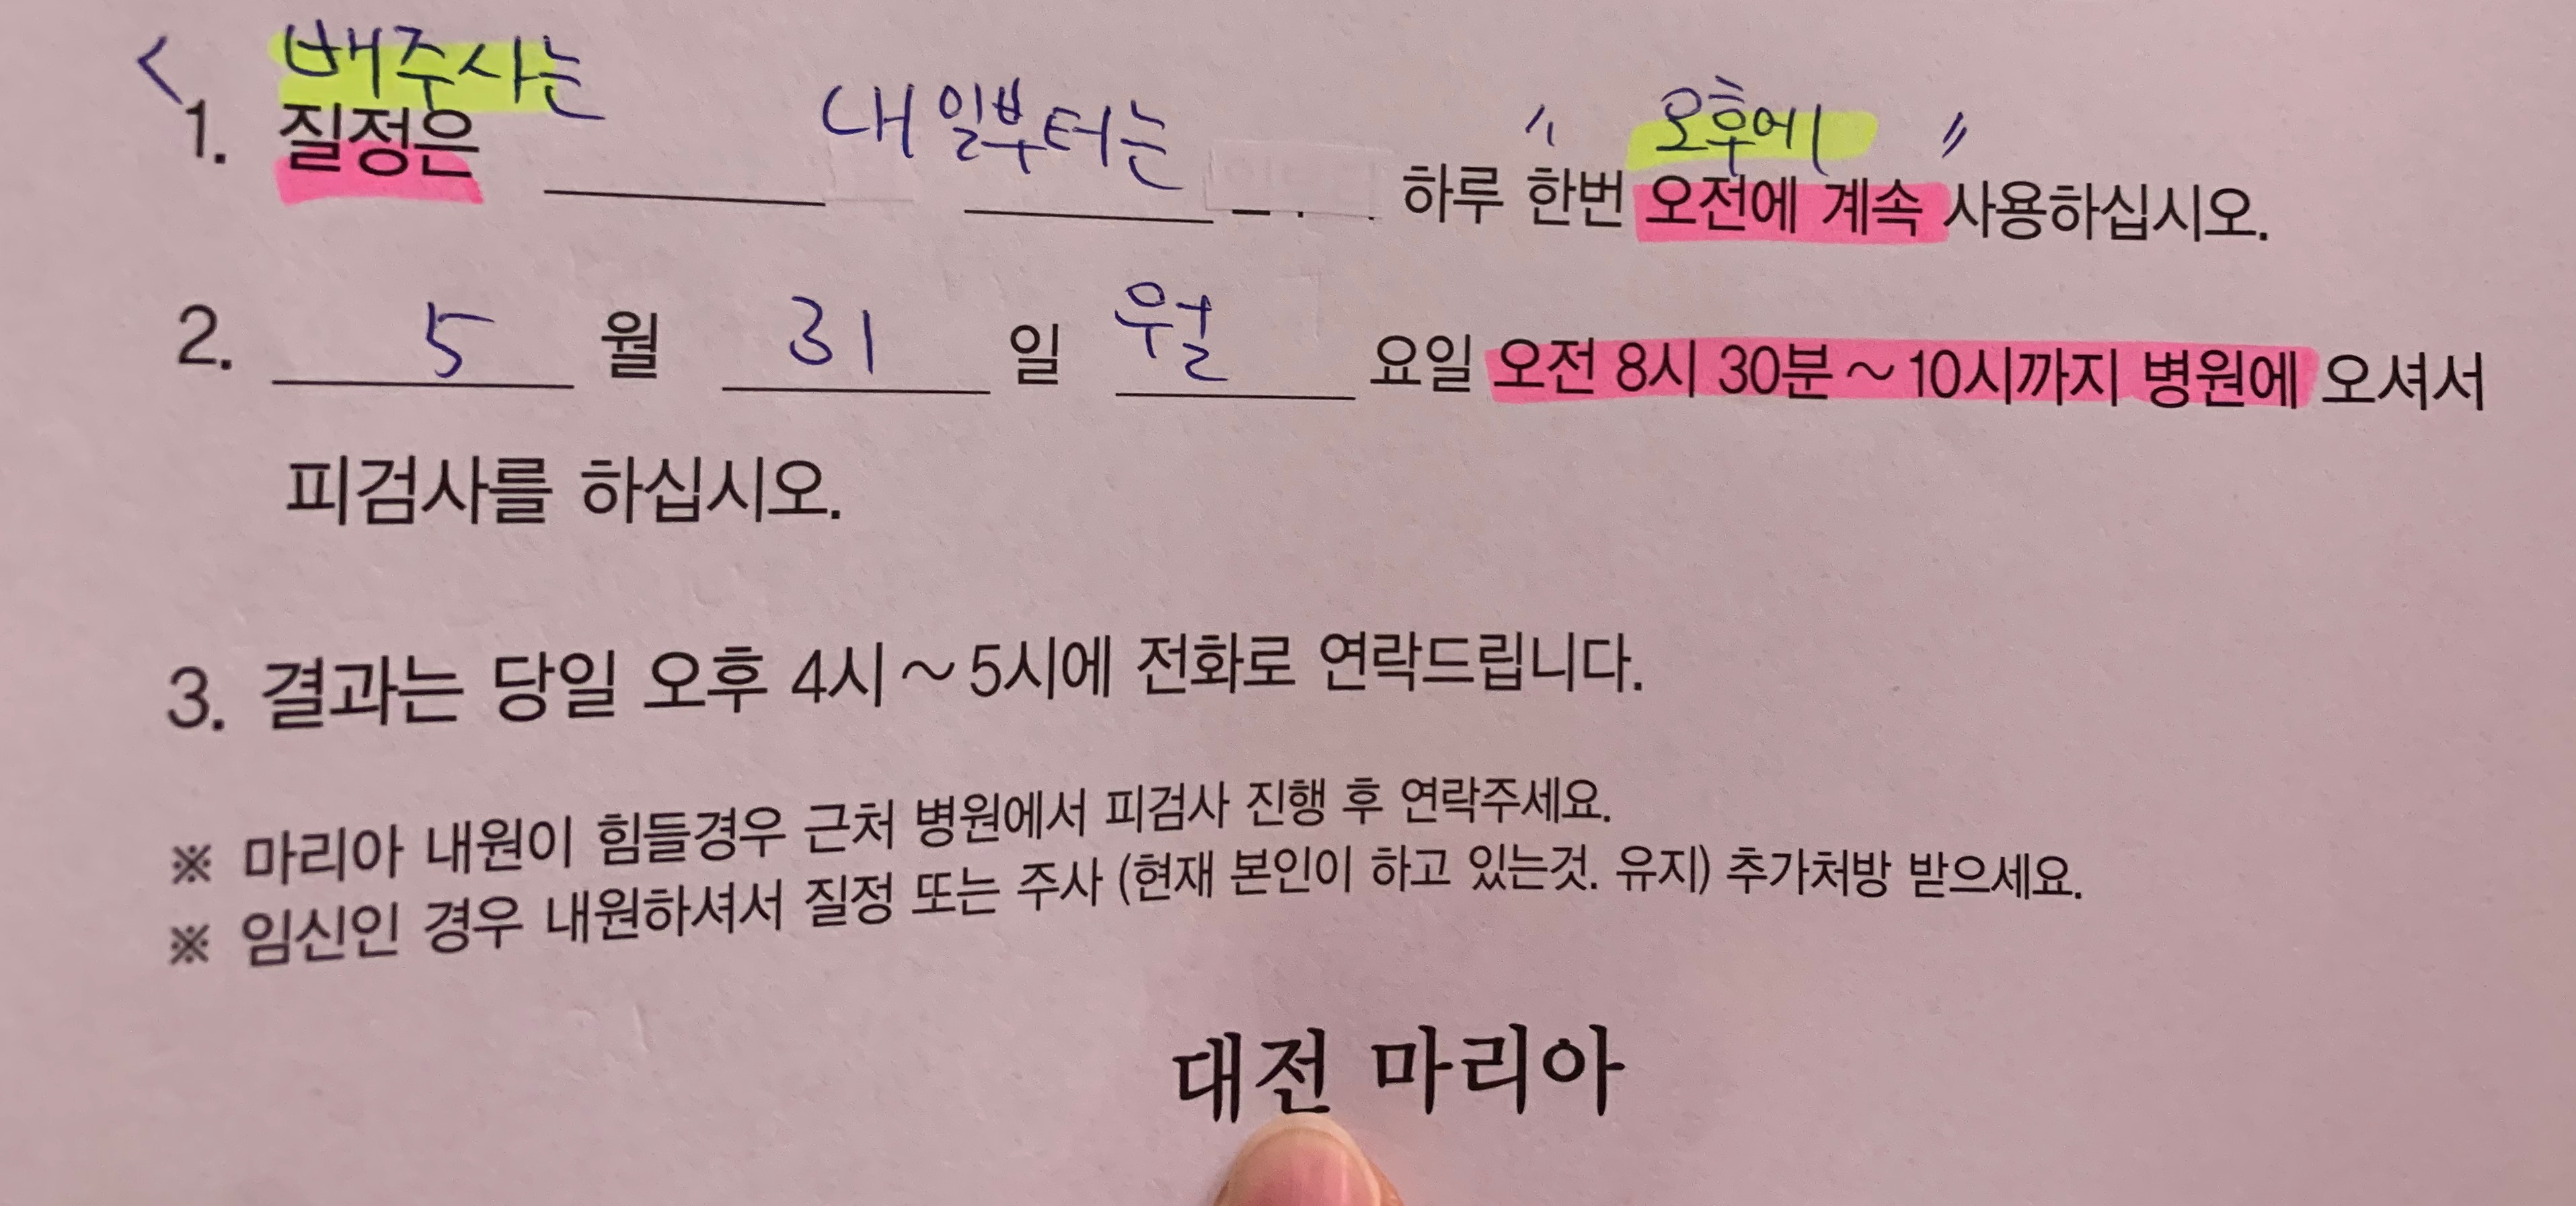 < 배주사는
내일부터는 " 오후에 "
1. 질정은 하루 한번 오전에 계속 사용하십시오.
2. 5 월 31 일 월 요일 오전 8시 30분~10시까지 병원에 오셔서
피검사를 하십시오.
3. 결과는 당일 오후 4시~5시에 전화로 연락드립니다.
※ 마리아 내원이 힘들경우 근처 병원에서 피검사 진행 후 연락주세요.
※ 임신인 경우 내원하셔서 질정 또는 주사 (현재 본인이 하고 있는것. 유지) 추가처방 받으세요.
대전 마리아